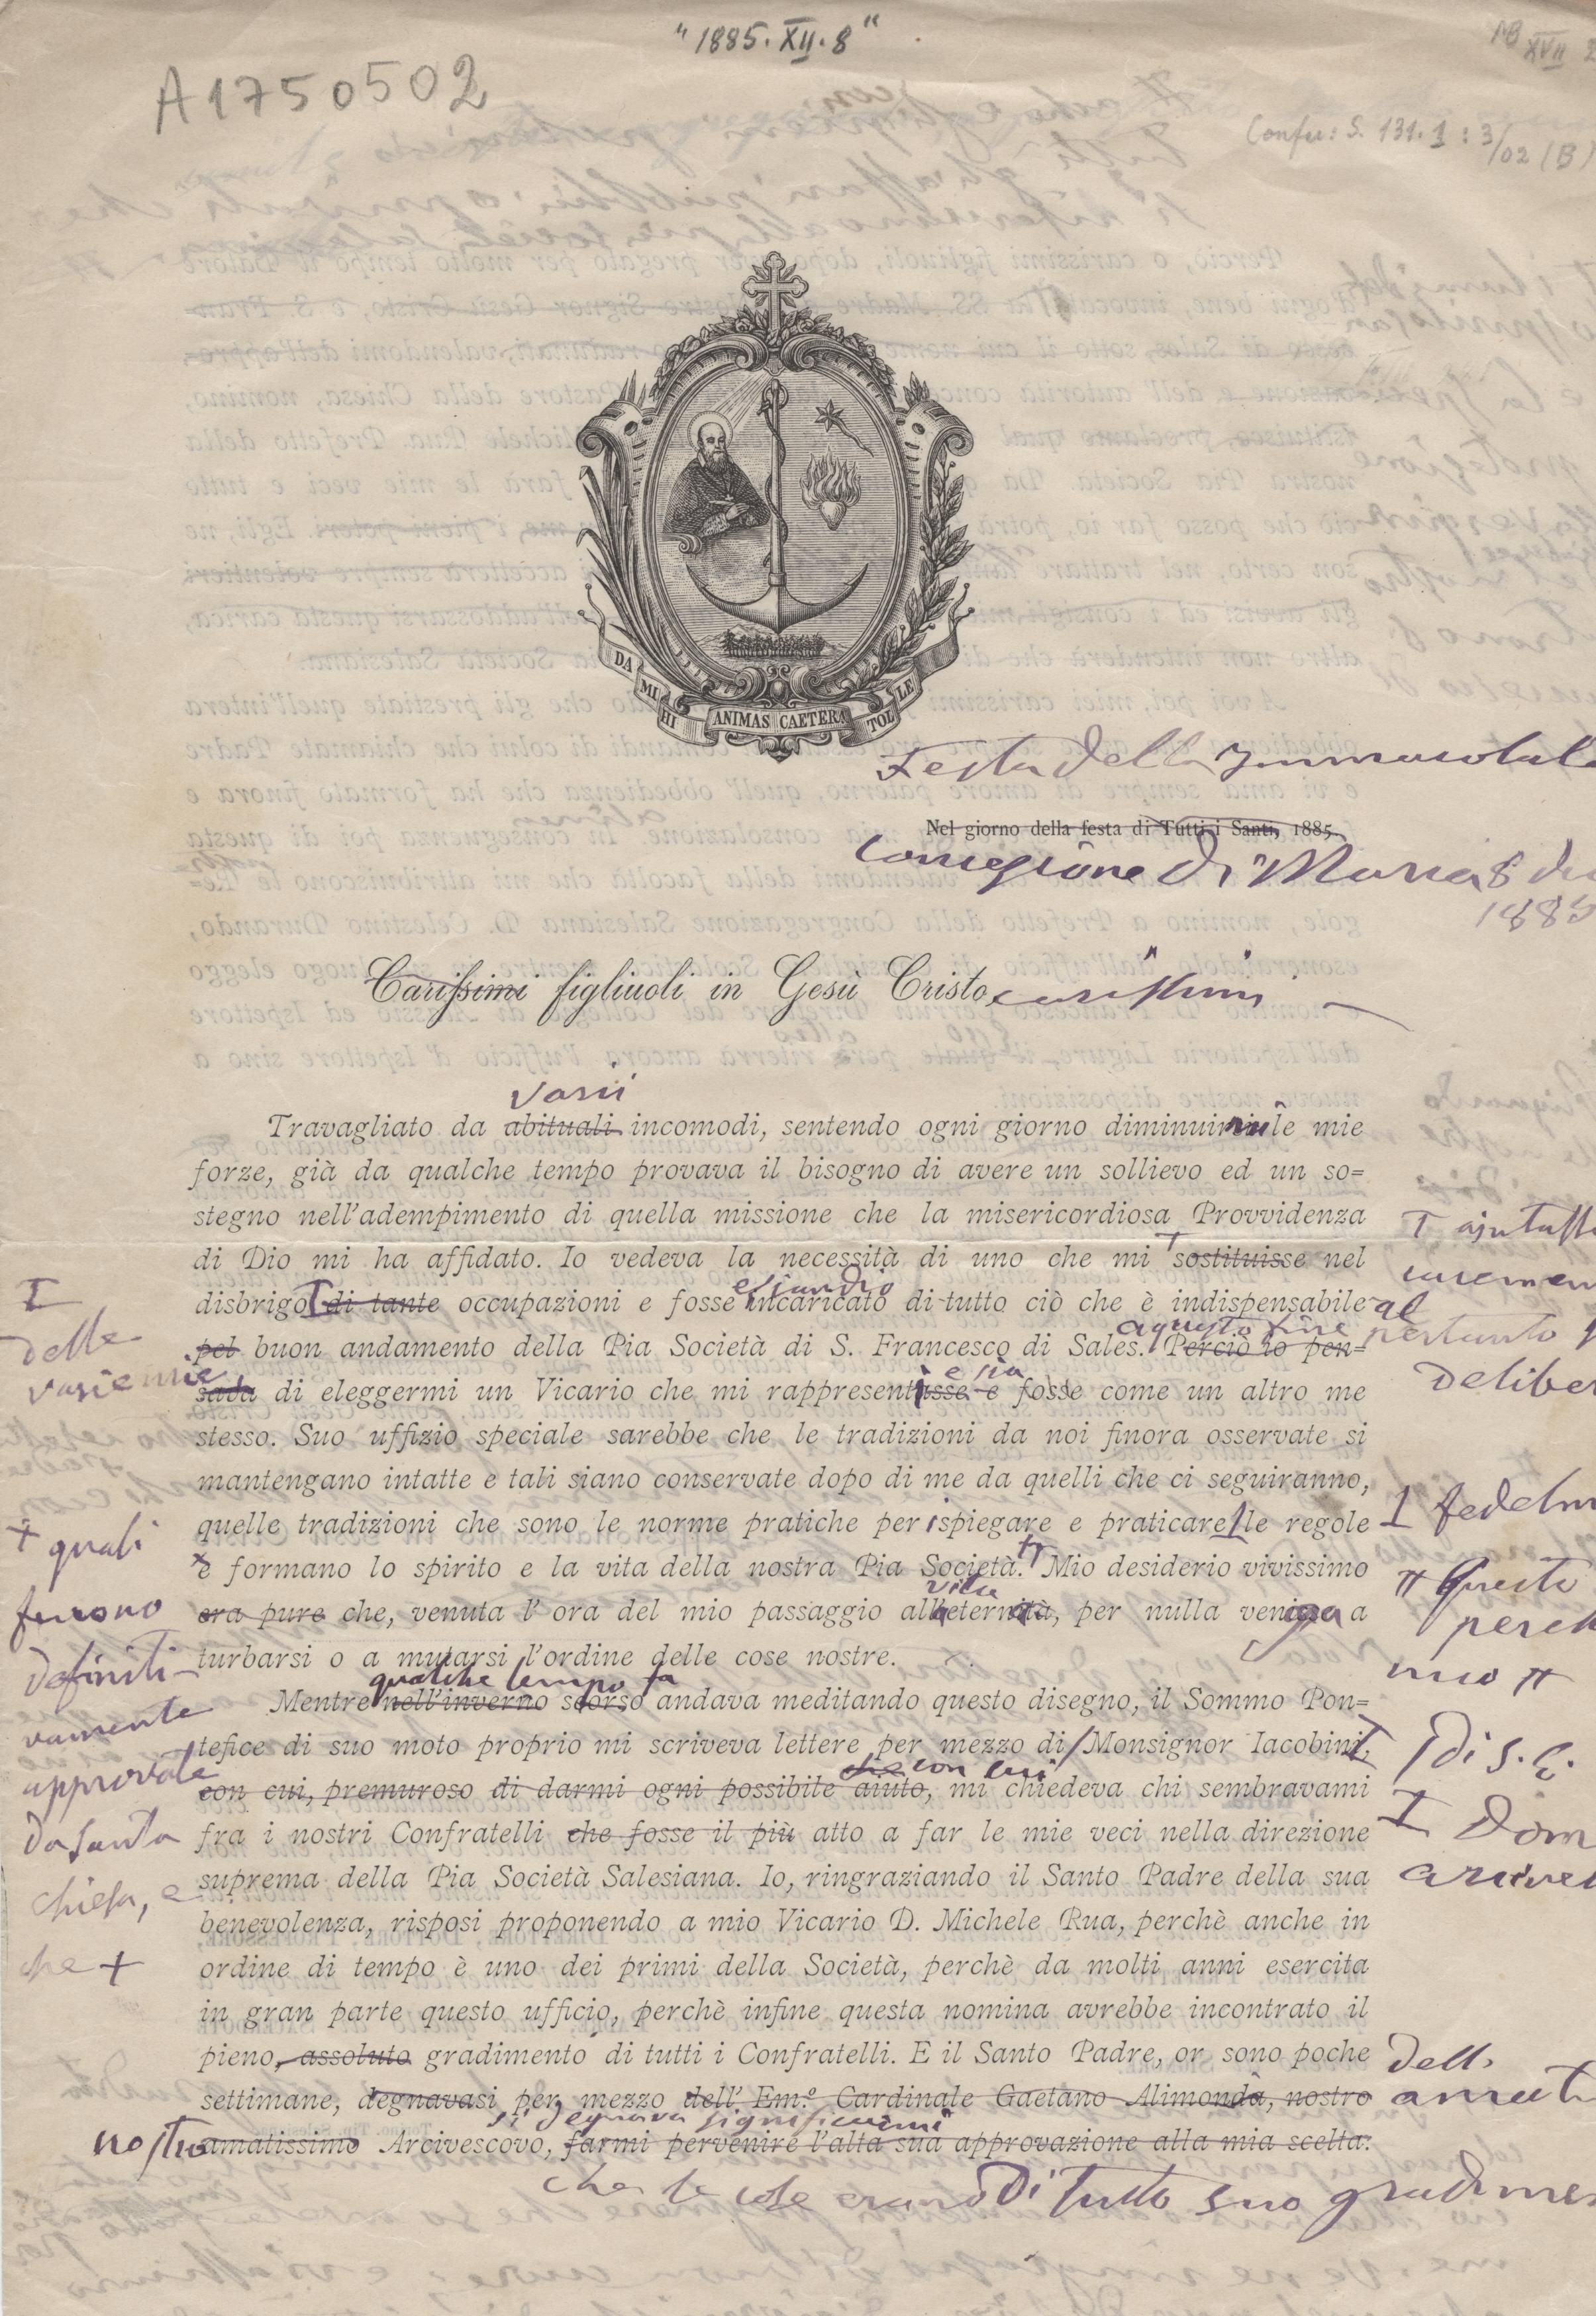 "1885. XII. 8"
A1750502
Confer: S. 131.1 : 3/02 (B)
DA MIHI ANIMAS CAETERA TOLLE
Festa della Immacolata
Nel giorno della festa di Tutti i Santi, 1885.
Concezione di Maria 8
1885
Carissimi figliuoli in Gesù Cristo carissimi
varii
Travagliato da abituali incomodi, sentendo ogni giorno diminuirmi le mie
forze, già da qualche tempo provava il bisogno di avere un sollievo ed un so=
stegno nell'adempimento di quella missione che la misericordiosa Provvidenza
di Dio mi ha affidato. Io vedeva la necessità di uno che mi sostituisse nel
eziandio
disbrigo di tante occupazioni e fosse incaricato di tutto ciò che è indispensabile al
a questo fine
pel buon andamento della Pia Società di S. Francesco di Sales. Perciò io pen=
e sia
sava di eleggermi un Vicario che mi rappresentasse e fosse come un altro me
stesso. Suo uffizio speciale sarebbe che le tradizioni da noi finora osservate si
mantengano intatte e tali siano conservate dopo di me da quelli che ci seguiranno,
quelle tradizioni che sono le norme pratiche per ispiegare e praticare le regole
e formano lo spirito e la vita della nostra Pia Società. Mio desiderio vivissimo
vita
era pure che, venuta l'ora del mio passaggio all'eternità, per nulla venga a
turbarsi o a mutarsi l'ordine delle cose nostre.
qualche tempo fa
Mentre nell'inverno scorso andava meditando questo disegno, il Sommo Pon=
tefice di suo moto proprio mi scriveva lettere per mezzo di Monsignor Iacobini,
che con cui
con cui, premuroso di darmi ogni possibile aiuto, mi chiedeva chi sembravami
fra i nostri Confratelli che fosse il più atto a far le mie veci nella direzione
suprema della Pia Società Salesiana. Io, ringraziando il Santo Padre della sua
benevolenza, risposi proponendo a mio Vicario D. Michele Rua, perchè anche in
ordine di tempo è uno dei primi della Società, perchè da molti anni esercita
in gran parte questo ufficio, perchè infine questa nomina avrebbe incontrato il
pieno, assoluto gradimento di tutti i Confratelli. E il Santo Padre, or sono poche
settimane, degnavasi per mezzo dell' Em.º Cardinale Gaetano Alimonda, nostro
si degnava significarmi
nostro amatissimo Arcivescovo, farmi pervenire l'alta sua approvazione alla mia scelta.
che le cose erano di tutto suo
I
delle
varie mie
+ quali
furono
definiti-
vamente
approvate
da santa
chiesa, e
che +
pertanto
π Questo
mio π
di S. C.